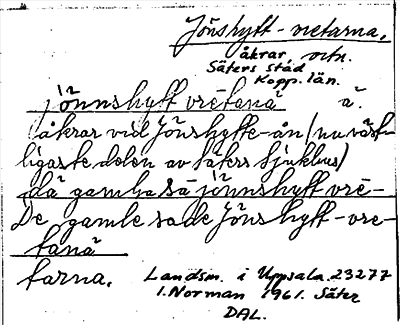 Jönshytt-vretarna.
åkrar vtn.
Säters stad
Kopp. län.
jönnshytt vrētana ä.
(åkrar vid Jönshytte-ån (nu väst-
ligaste delen av Säters sjukhus)
då gamḷa sä jönnshytt vrē-
De gamle sade Jönshytt-vre-
tanä
tarna.
Landsm. i Uppsala. 23277
I. Norman 1961. Säter
DAL.